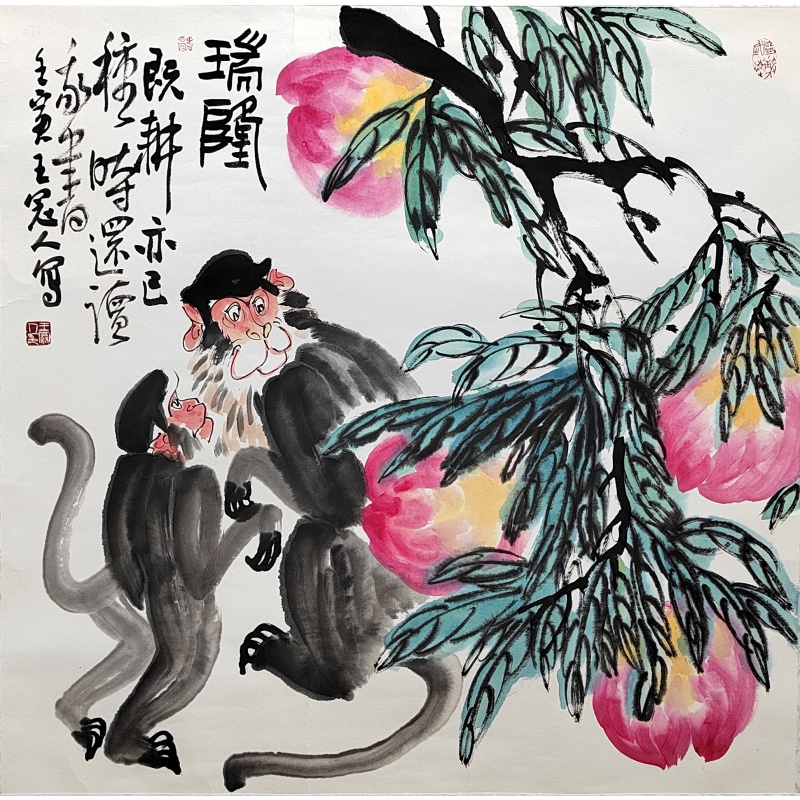 瑞隆
既耕亦已
種時還讀
我書
壬寅王冠人寫